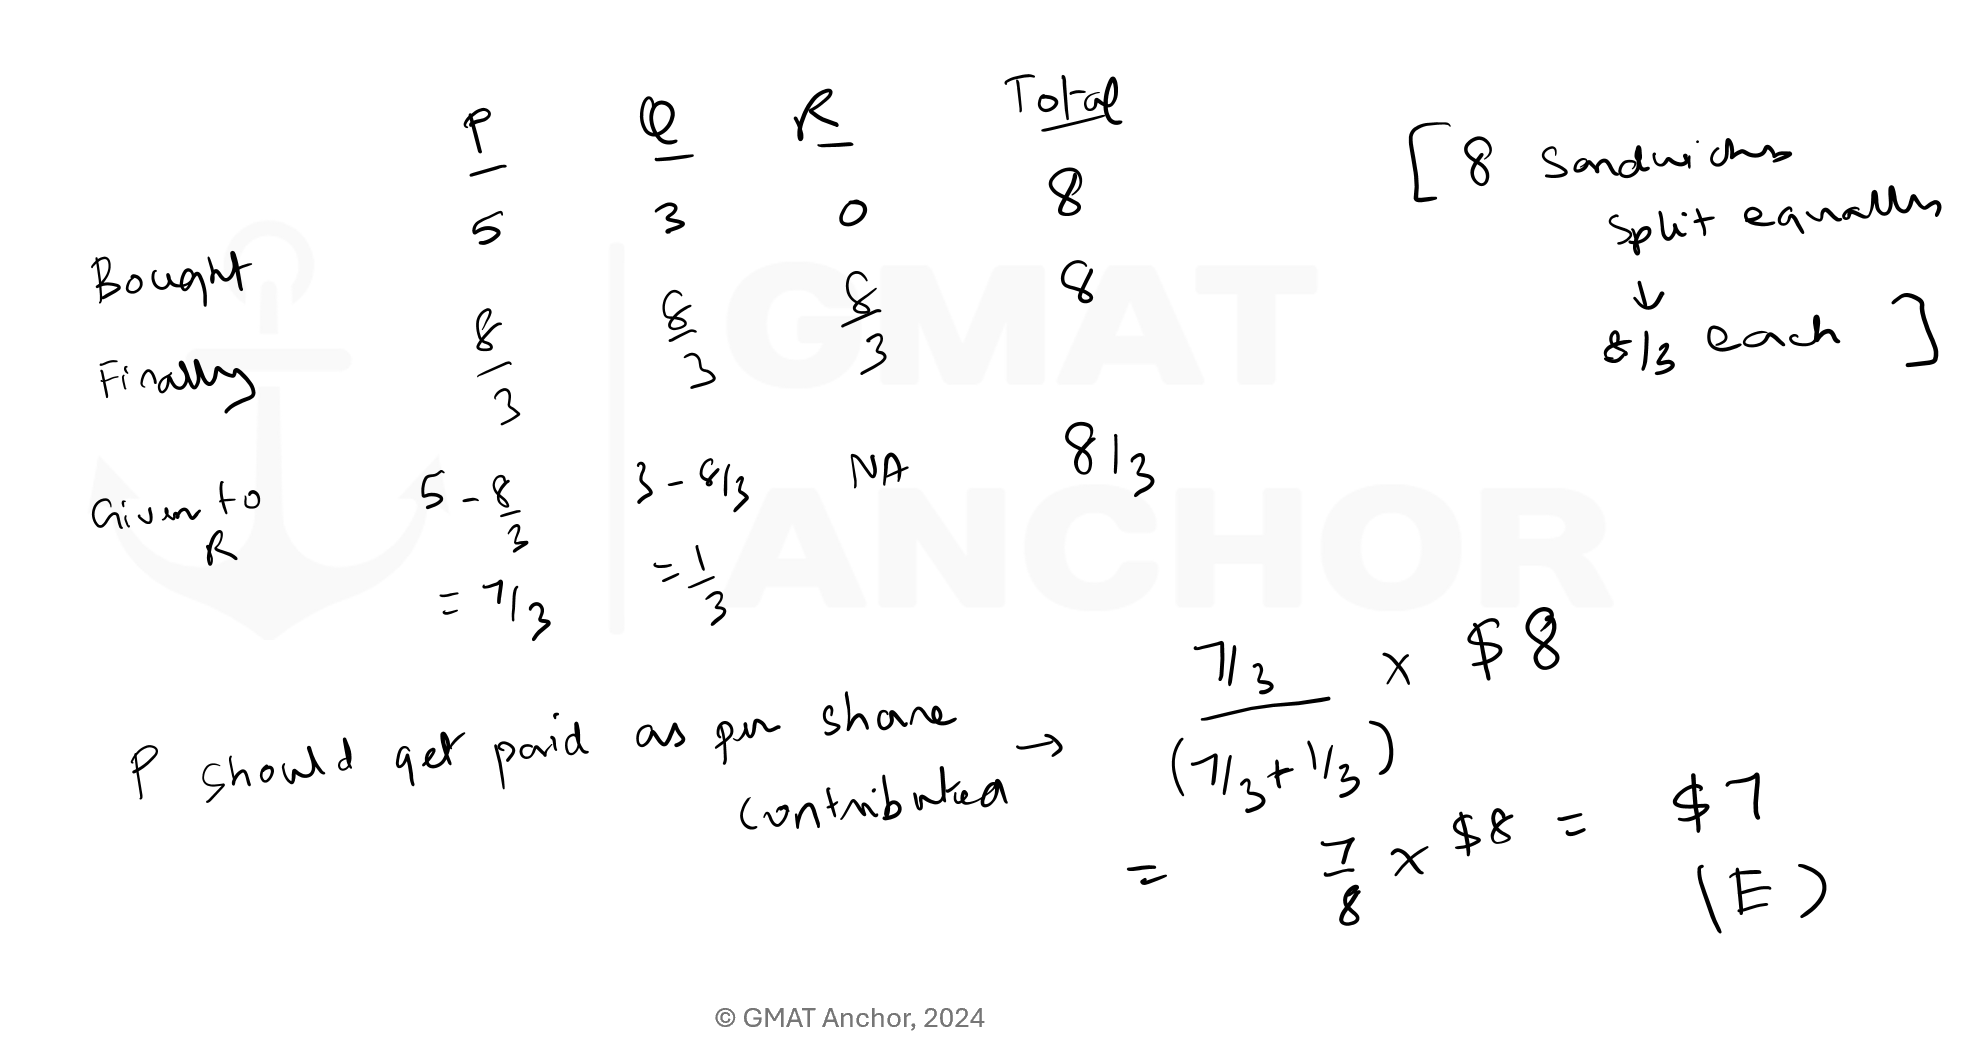 P Q R Total
Bought 5 3 0 8
Finally 8/3 8/3 8/3 8
[8 Sandwiches
split equally
↓
8/3 each]
Given to R 5 - 8/3 3 - 8/3 NA 8/3
= 7/3 = 1/3
P should get paid as per share
contributed → (7/3)/(7/3 + 1/3) x $8
= 7/8 x $8 = $7
(E)
GMAT
ANCHOR
© GMAT Anchor, 2024